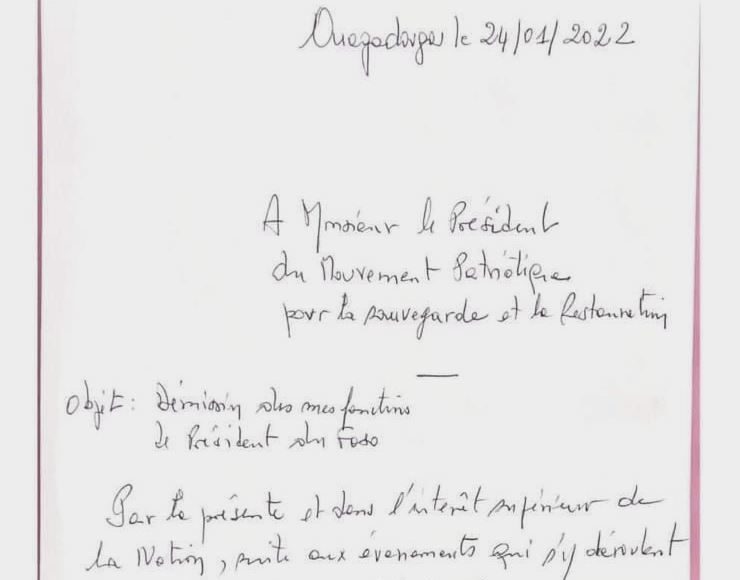 Ouagadougou le 24/01/2022
A Monsieur le Président
du Mouvement Patriotique
pour la sauvegarde et la Restauration
Objet : Démission de mes fonctions
de Président du Faso
Par la présente et dans l'intérêt supérieur de
la Nation, suite aux évenements qui s'y déroulent